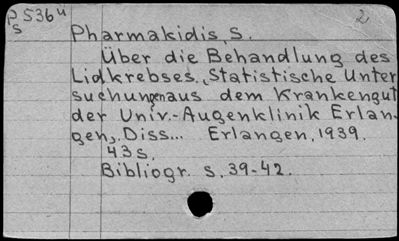 P 536 u
s
2
Pharmakidis, S.
Über die Behandlung des
Lidkrebses. Statistische Unter
suchungen aus dem Krankengut
der Univ.-Augenklinik Erlan-
gen. Diss... Erlangen, 1939.
43 s.
Bibliogr. s. 39-42.